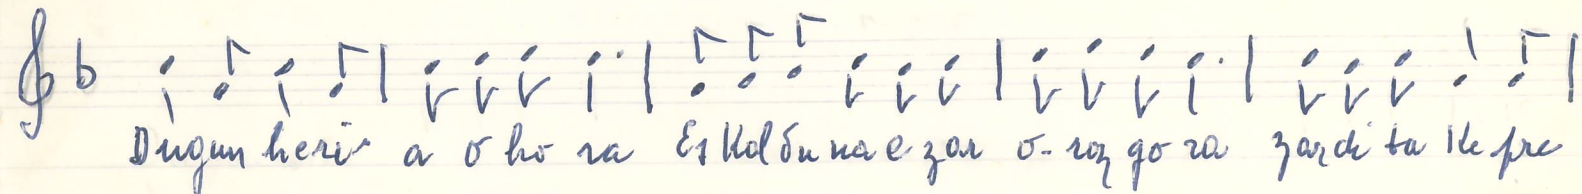 Dugun heri a o ho ra Es Kal du na e zar o- roz go ra zar di ta Ke pre